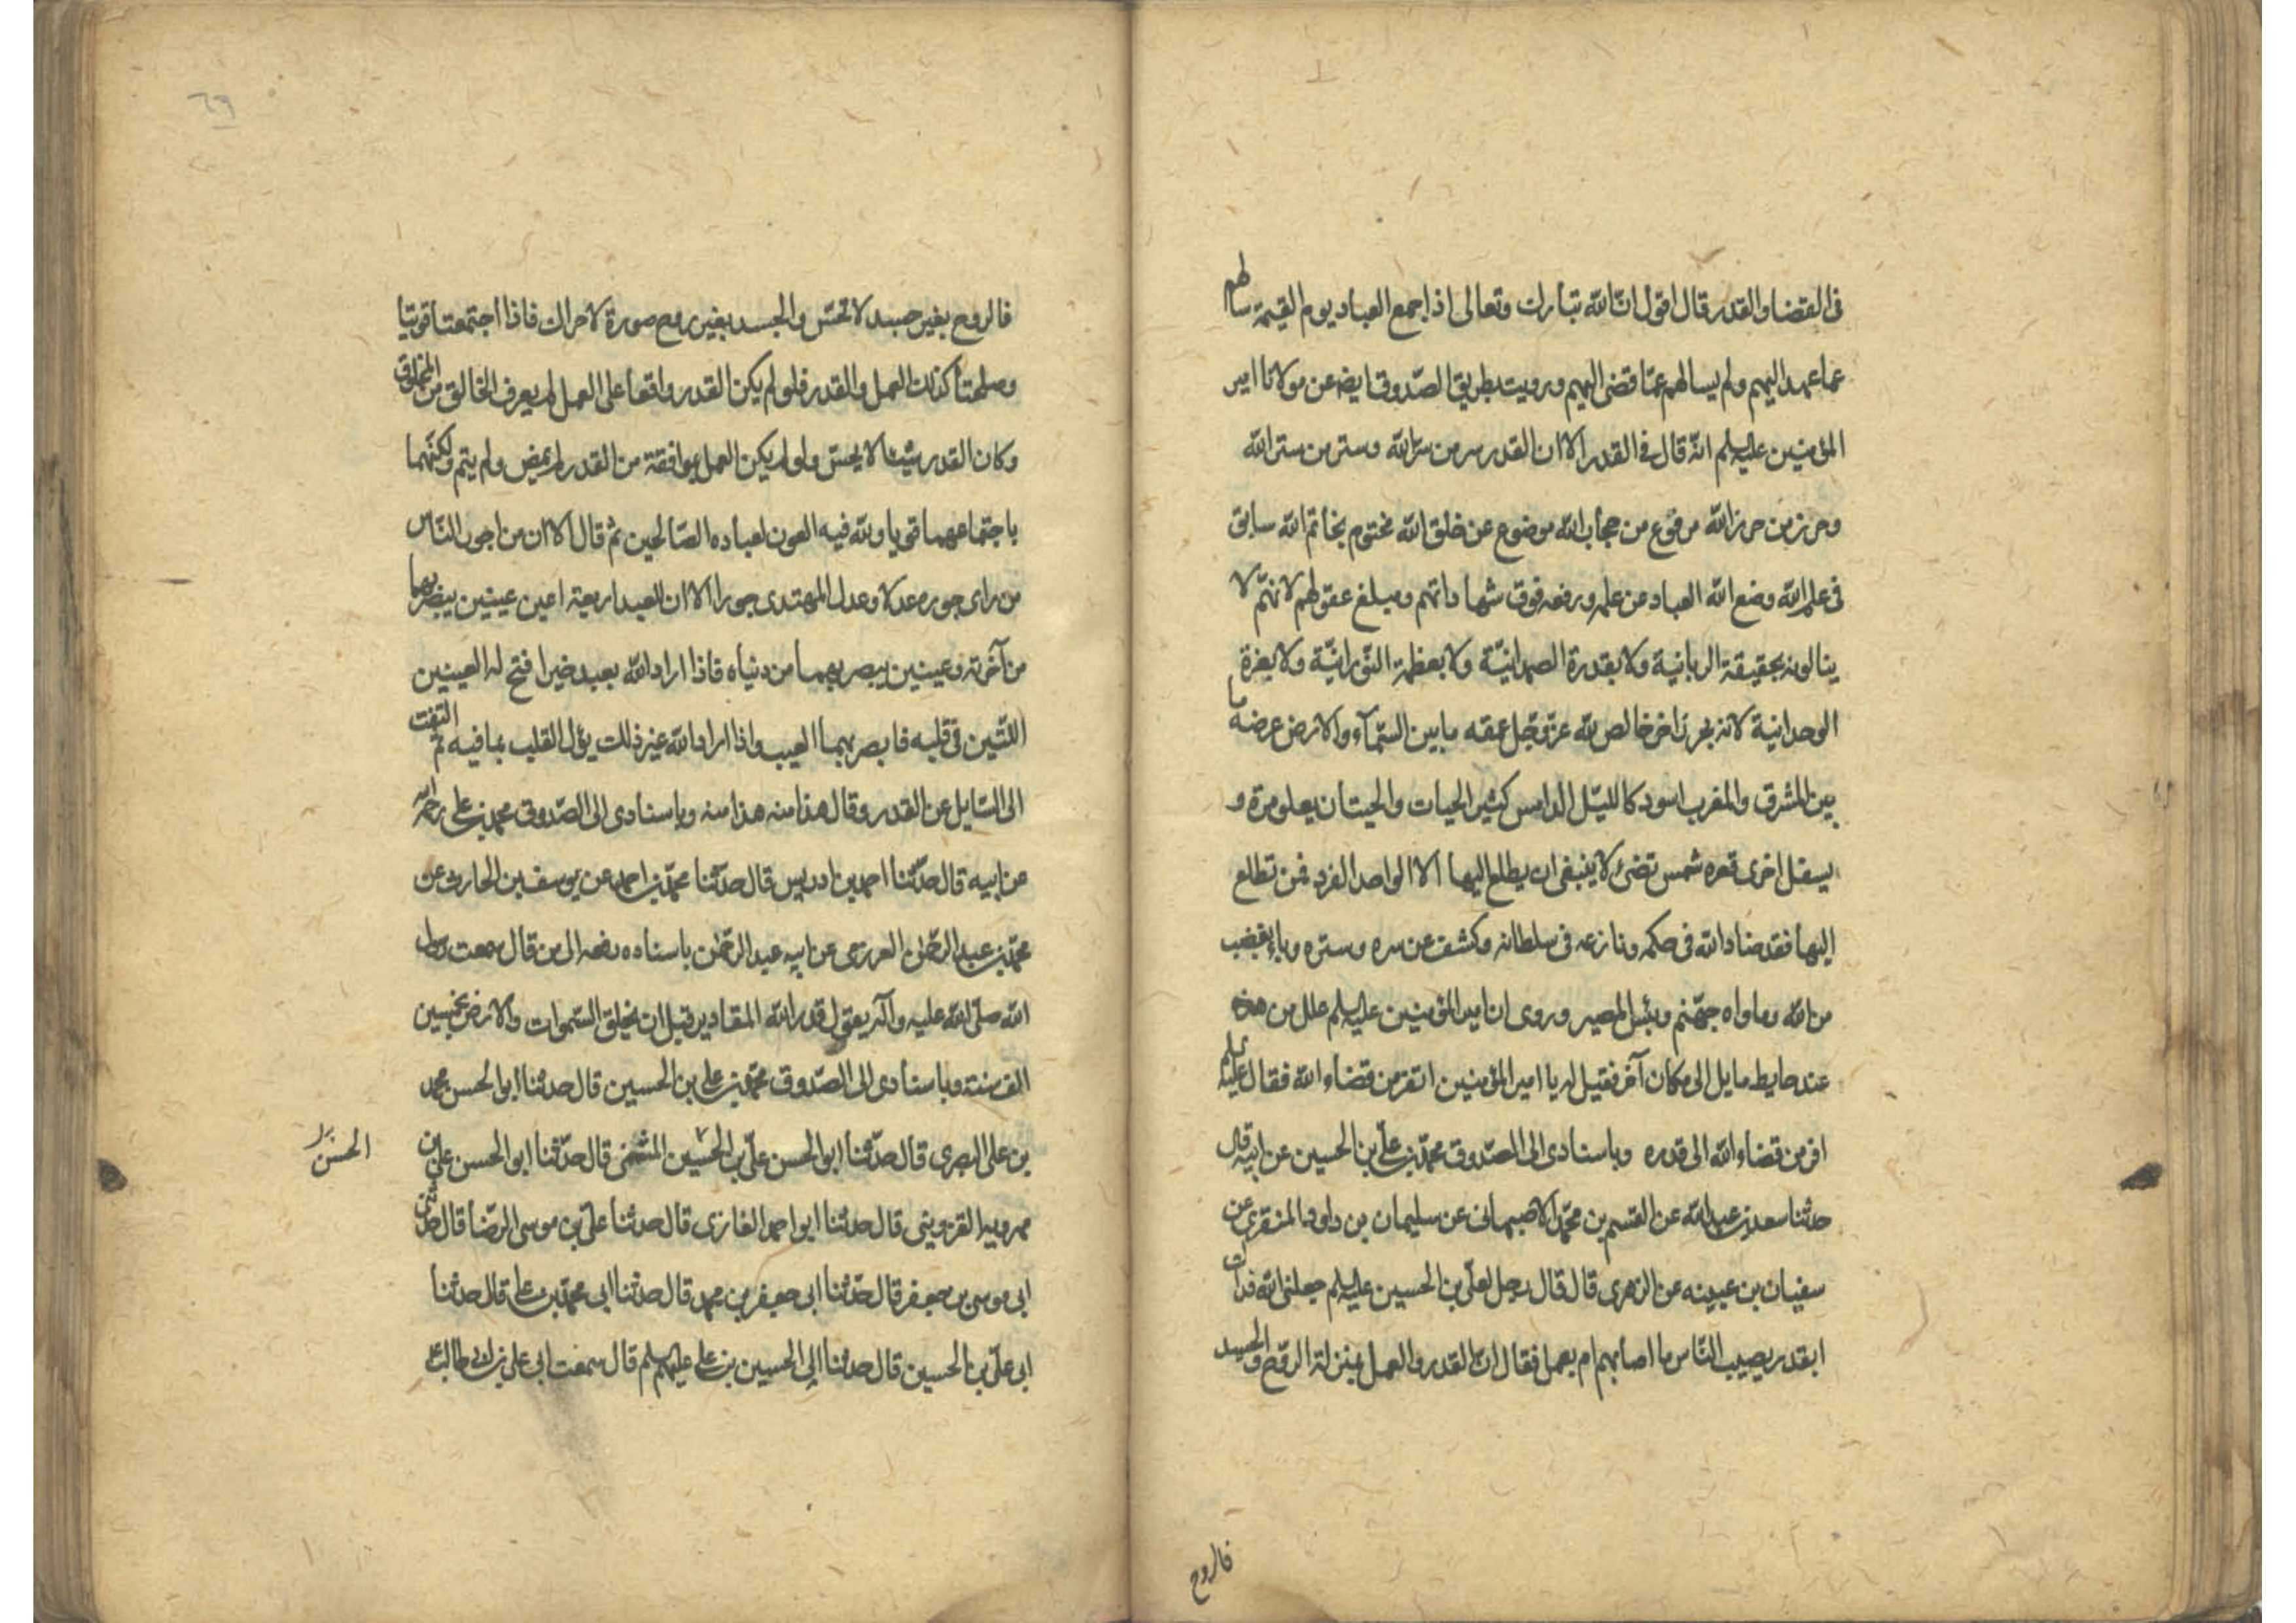 فى القضا والقدر قال اقول ان الله تبارك وتعالى اذا جمع العباد يوم القيمة سالهم
عما عهد اليهم ولم يسالهم عمّا قضى اليهم ورويت بطريق الصّدوق ايضه عن مولانا امير
المؤمنين عليه السلم انّه قال فى القدر الا ان القدر سر من سرّ الله وستر من ستر الله
وحرز من حرز الله مرفوع من حجاب الله موضوع عن خلق الله مختوم بخاتم الله سابق
فى علم الله وضع الله العباد عن علمه ورفعه فوق شهاداتهم ومبلغ عقولهم لانهّم لا
ينالونه بحقيقة الربانية ولا بقدرة الصمدانيّة ولا بعظمة النّورانيّة ولا بعزة
الوحدانية لانه بحر زاخر خالص لله عزّ وجّل عمقه ما بين السّمآء والارض عرضه ما
بين المشرق والمغرب اسود كالليّل الدامس كثير الحيات والحيتان يعلو مرة و
يسفل اخرى قعره شمس تضئ لا ينبغى ان يطلع اليها الا الواحد الفرد فمن تطلع
اليها فقد ضاد الله فى حكمه ونازعه فى سلطانه وكشف عن سره وستره وباء بغضب
من الله وماواه جهّنم وبئس المصير وروى ان امير المؤمنين عليه السلم عدل من عند
عند حايط مايل الى مكان آخر فقيل له يا امير المؤمنين اتفر من قضاء الله فقال عليه السلم
افر من قضاء الله الى قدره وباسنادى الى الصّدوق محمّد بن علىّ بن الحسين عن ابيه قال
حدثنا سعد بن عبد الله عن القسم بن محمّد الاصبهانى عن سليمان بن داود المنقرى عن
سفيان بن عيينه عن الزهرى قال قال رجل لعلىّ بن الحسين عليه السلم جعلنى الله فداك
ابقدر يصيب النّاس ما اصابهم ام بعمل فقال انّ القدر والعمل بمنزلة الروّح والجسد
فالروح
٦٩
فالروح بغير جسد لا تحسّ والجسد بغير روح صورة لا حراك فاذا اجتمعتا قويتا
وصلحتا كذلك العمل والقدر فلو لم يكن القدر واقعا على العمل لم يعرف الخالق من المخلوق
وكان القدر شيئا لا يحسّ ولو لم يكن العمل بموافقة من القدر لم يمض ولم يتم ولكنّهما
باجتماعهما قويا ولله فيه العون لعباده الصّالحين ثم قال الا ان من اجور النّاس
من راى جوره عدلا وعدل المهتدى جورا الا ان للعبد اربعة اعين عينين يبصر بهما
من آخرته وعينين يبصر بهما من دنياه فاذا اراد الله بعبد خيرا فتح له العينين
اللتّين فى قلبه فابصر بهما العيب واذا اراد الله غير ذلك ترك القلب بما فيه ثم التفت
الى السّايل عن القدر وقال هذا منه هذا منه وباسنادى الى الصّدوق محمد بن على رحمه الله
عن ابيه قال حدّثنا احمد بن ادريس قال حدثنا محمّد بن احمد عن يوسف بن الحارث عن
محمّد بن عبد الرحمّن العرزمى عن ابيه عبد الرحمّن باسناده رفعه الى من قال سمعت رسول
الله صلّى الله عليه وآله يقول قدر الله المقادير قبل ان يخلق السّموات والارض بخمسين
الف سنة وباسنادى الى الصّدوق محمّد بن على بن الحسين قال حدثنا ابو الحسن محمد
بن على البصرى قال حدّثنا ابو الحسن علىّ بن الحسين المثنى قال حدّثنا ابو الحسن على بن
الحسن
مهرويه القزوينى قال حدثنا ابو احمد الغازى قال حدثنا علىّ بن موسى الرضّا قال حدثنى
ابى موسى بن جعفر قال حدّثنا ابى جعفر بن محمد قال حدثنا ابى محمّد بن على قال حدثنا
ابى علىّ بن الحسين قال حدثنا ابى الحسين بن على عليهم السلم قال سمعت ابى على بن ابى طالب ع